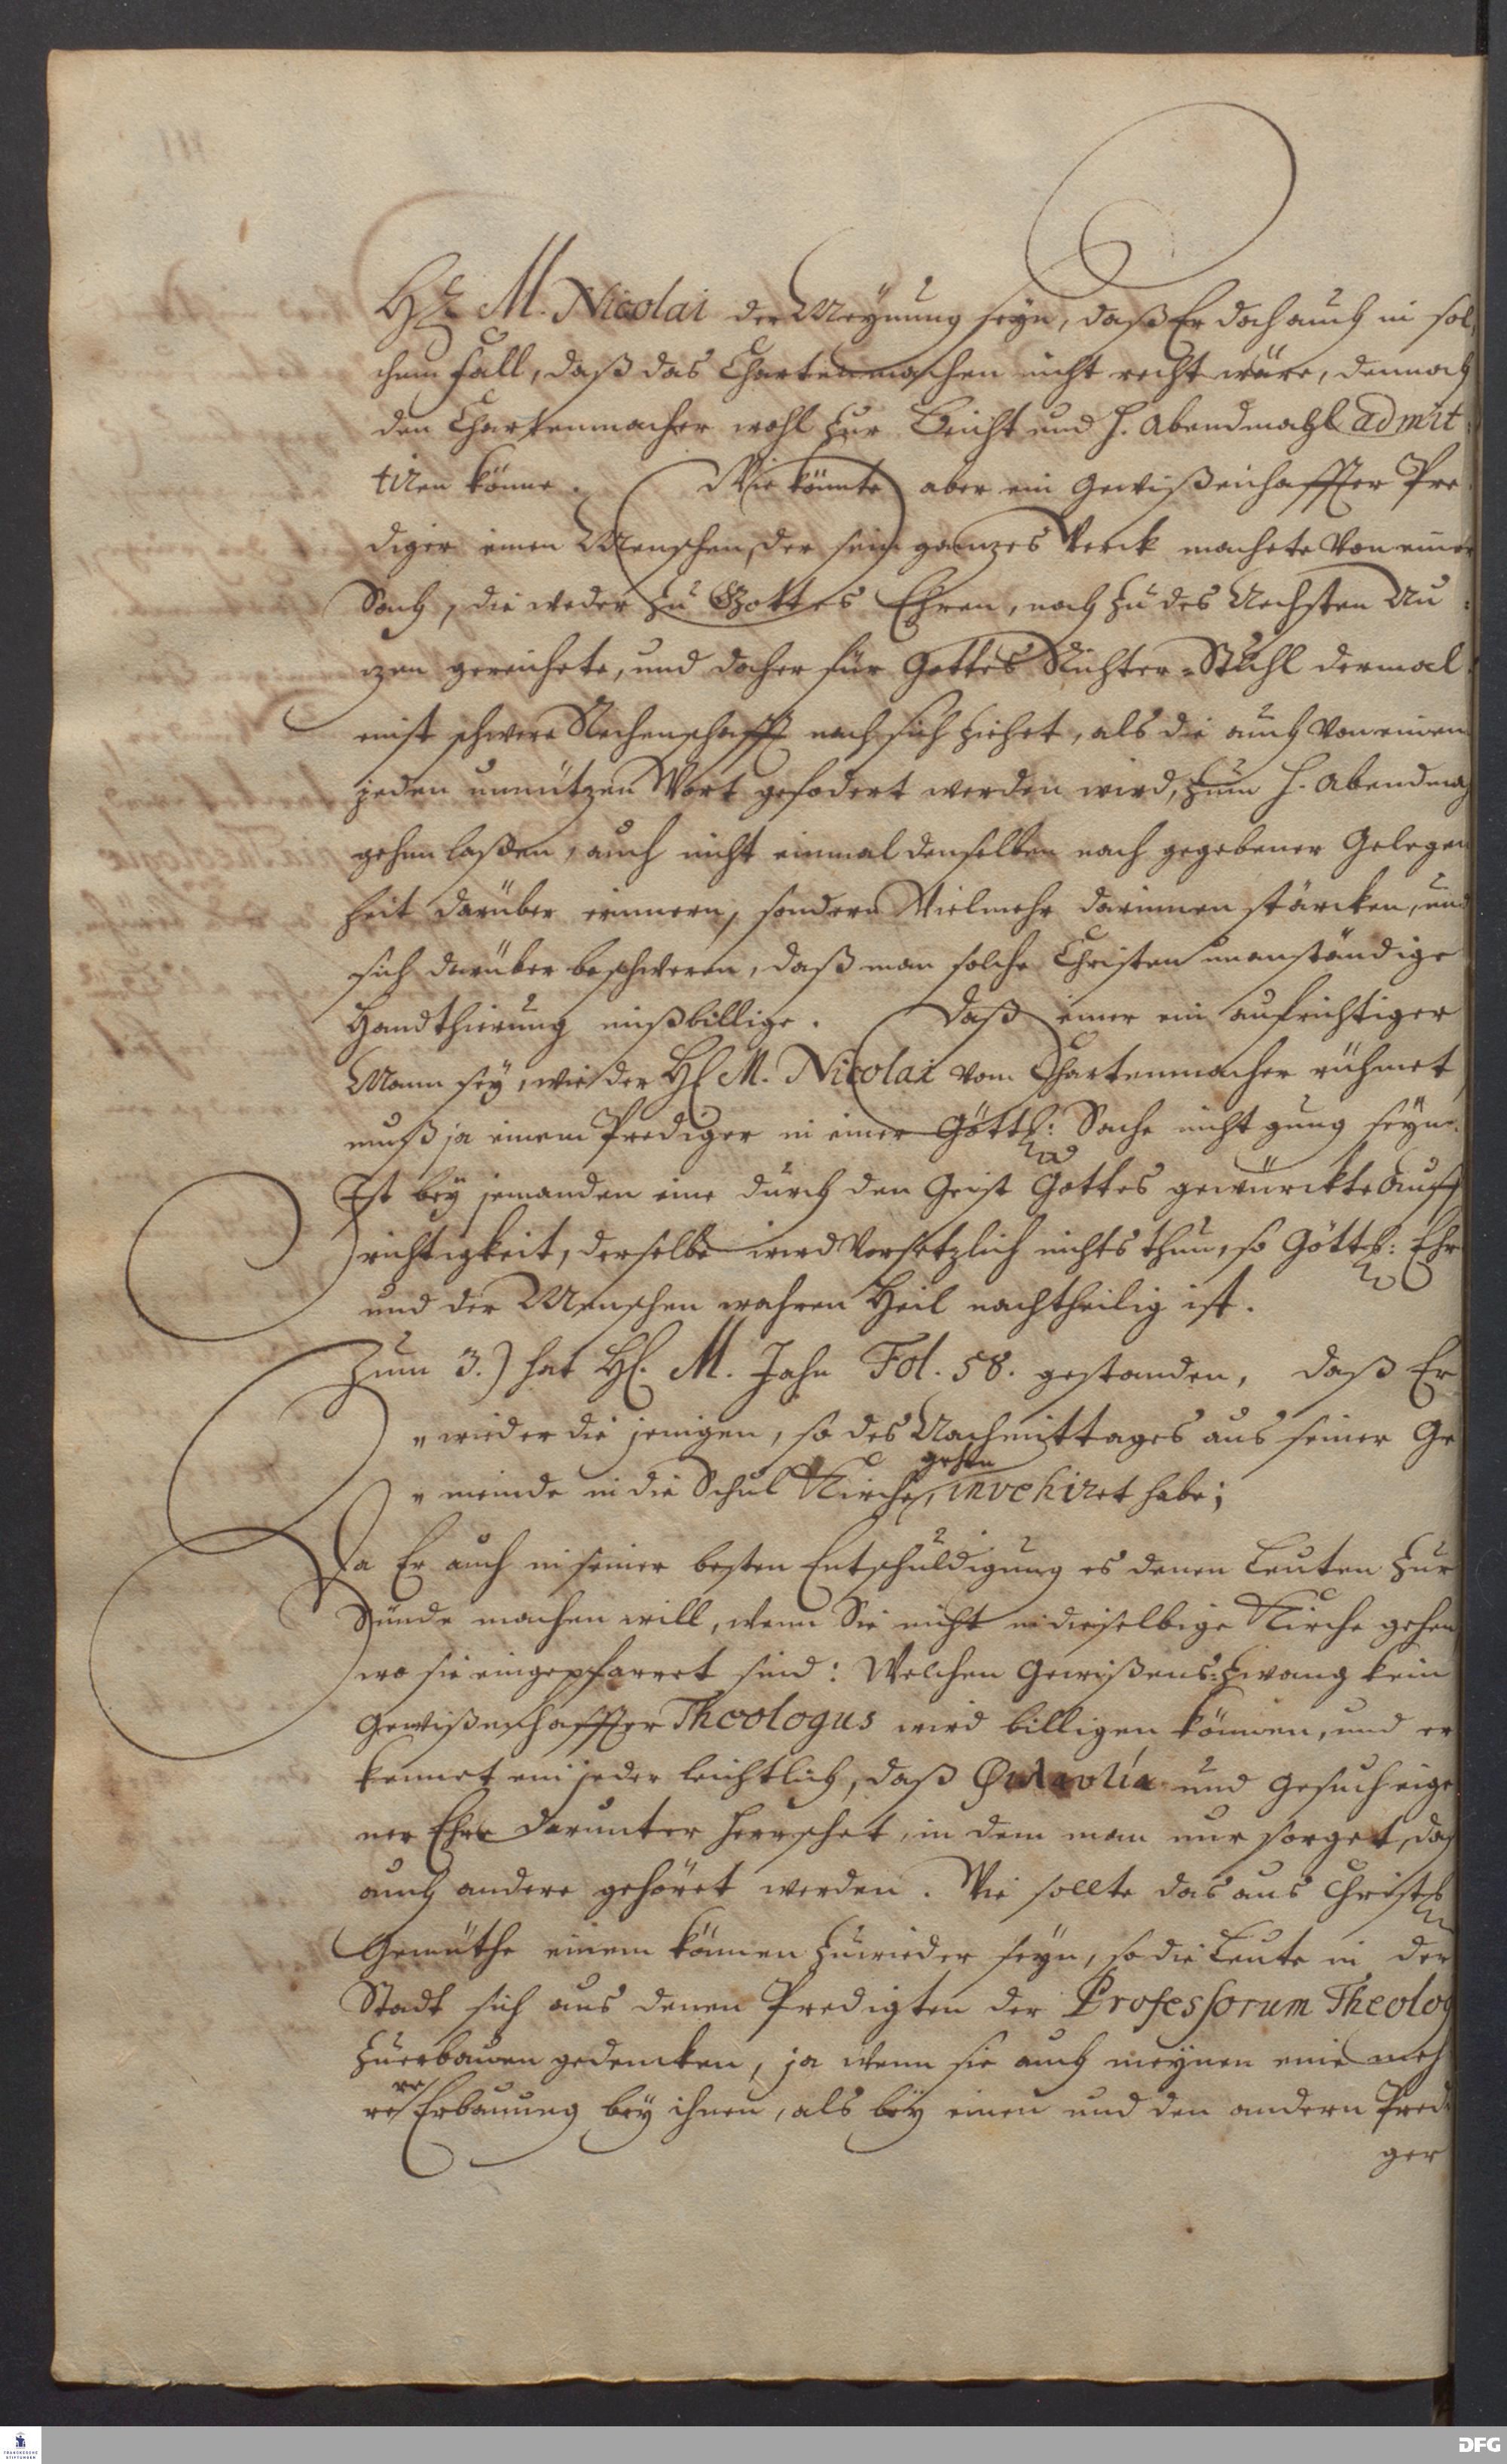 Hr. M. Nicolai der Meynung seyn, daß Er doch auch in sol-
chem Fall, daß das Chartenmachen nicht recht wäre, dennoch
den Chartenmacher wohl zur Beicht und H. Abendmahl admit-
tiren könne. Wie könnte aber ein Gewißenhaffter Pre-
diger einen Menschen, der sein ganzes Werck machete von einer
Sach, die weder zu Gottes Ehren, noch zu des Nechsten Nu-
zen gereichete, und daher für Gottes Richter-Stuhl dermal-
einst schwere Rechenschafft nach sich ziehet, als die auch von einem
jeden unnützen Wort gefodert werden wird, zum H. Abendmahl
gehen laßen, auch nicht einmal denselben nach gegebener Gelegen
heit darüber erinnern, sondern Vielmehr darinnen stärcken, und
sich darüber beschweren, daß man solche Christen unanständige
Handthierung mißbillige. Daß einer ein aufrichtiger
Mann sey, wie der H. M. Nicolai vom Chartenmacher rühmet
muß ja einem Prediger in einer Göttl: Sache nicht gnug seyn.
Ist bey jemanden eine durch den Geist Gottes gewürckte Auff
richtigkeit, derselbe wird Vorsetzlich nichts thun, so Göttl: Ehr
und der Menschen wahren Heil nachtheilig ist.
Zum 3.) hat H. M. Jahn Fol. 58. gestanden, daß Er
" wieder die jenigen, so des Nachmittages aus seiner Ge
" meinde in die Schul Kirche gehen, invehiret habe;
Da Er auch in seiner besten Entschuldigung es denen Leuten zur
Sünde machen will, wenn Sie nicht in dieselbige Kirche gehen
wo sie eingepfarret sind: Welchen Gewißens-Zwang kein
Gewißenhaffter Theologus wird billigen können, und er
kennet ein jeder leichtlich, daß Φιλαυτία und Gesuch eige
ner Ehre darunter herrschet, in dem man nur sorget, daß
auch andere gehöret werden. Wie sollte das aus Christl
Gemüthe einem können zuwieder seyn, so die Leute in der
Stadt sich aus denen Predigten der Professorum Theolog
zu erbauen gedencken, ja wenn sie auch meynen eine meh
rere Erbauung bey ihnen, als bey einen und den andern Predi
ger
FRANCKESCHE STIFTUNGEN
DFG